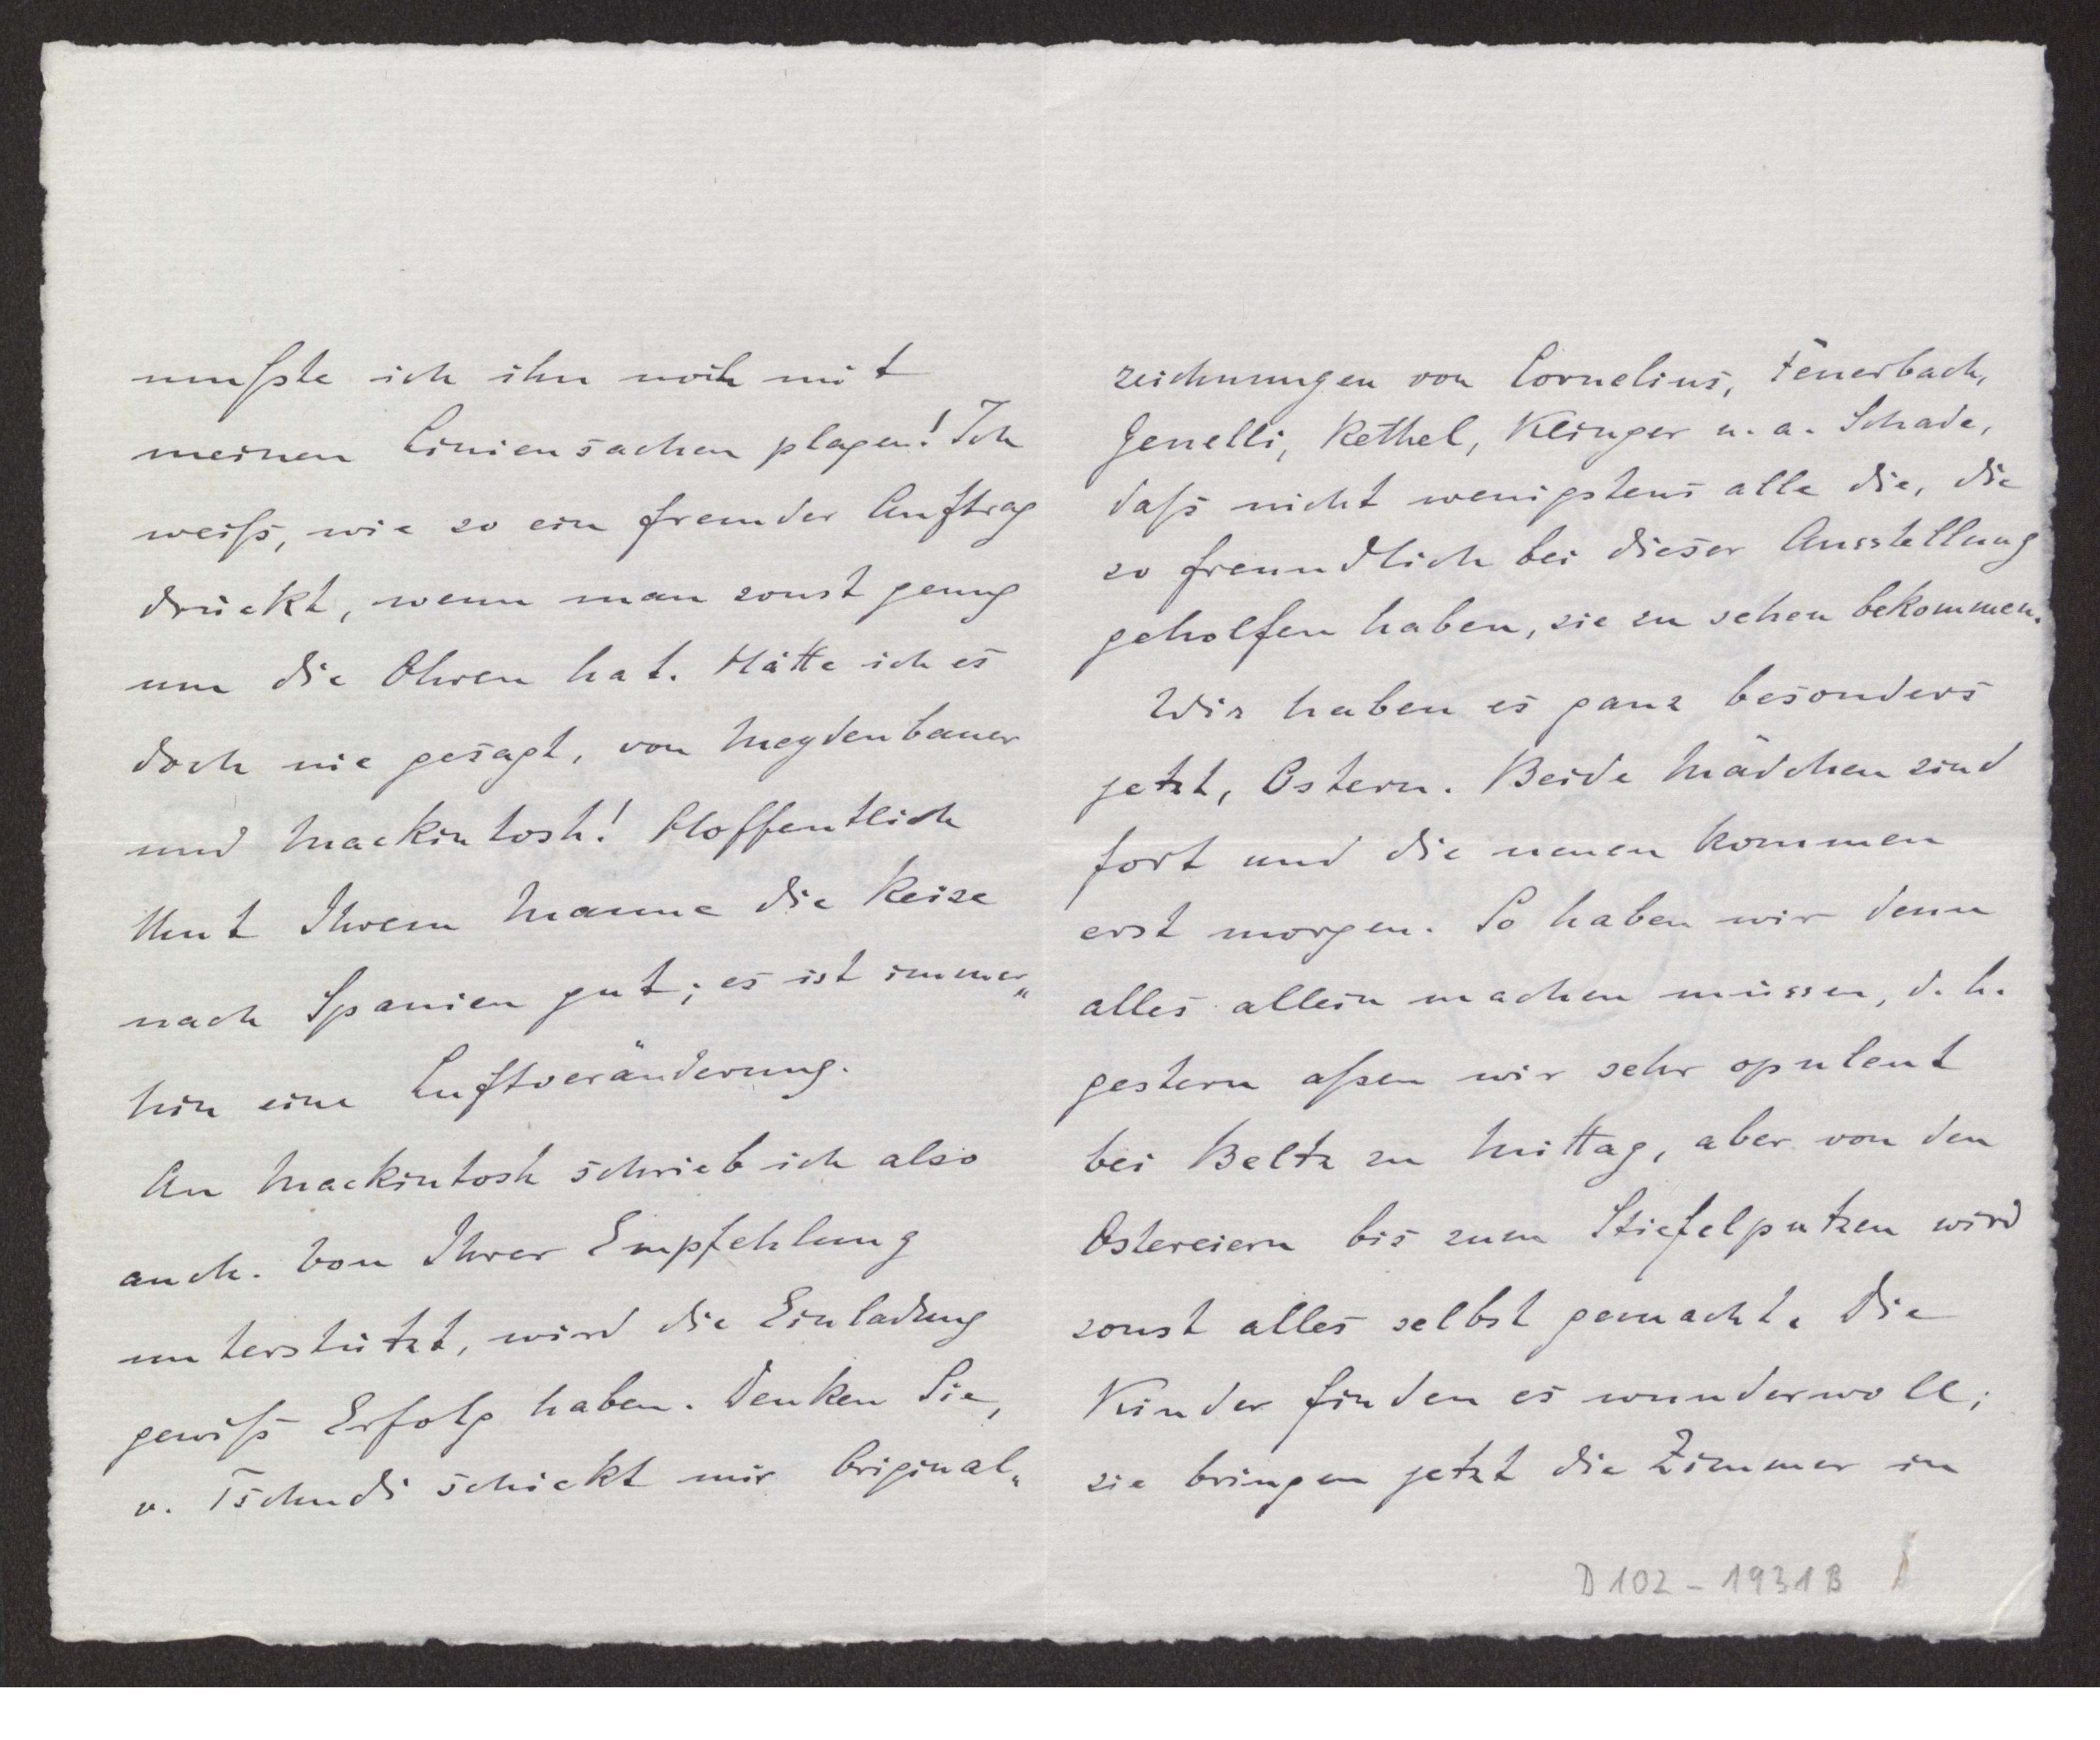 mußte ich ihn noch mit
meinen Liniensachen plagen! Ich
weiß, wie so ein fremder Auftrag
drückt, wenn man sonst genug
um die Ohren hat. Hätte ich es
doch nie gesagt, von Meydenbauer
und Mackintosh! Hoffentlich
thut Ihrem Manne die Reise
nach Spanien gut; es ist immer„
hin eine Luftveränderung.
An Mackintosh schrieb ich also
auch. Von Ihrer Empfehlung
unterstützt, wird die Einladung
gewiß Erfolg haben. Denken Sie,
v. Tschudi schickt mir Original„
zeichnungen von Cornelius, Feuerbach,
Genelli, Rethel, Klinger u. a. Schade,
daß nicht wenigstens alle die, die
so freundlich bei dieser Ausstellung
geholfen haben, sie zu sehen bekommen.
Wir haben es ganz besonders
jetzt, Ostern. Beide Mädchen sind
fort und die neuen kommen
erst morgen. So haben wir denn
alles allein machen müssen, d. h.
gestern aßen wir sehr opulent
bei Beltz zu Mittag, aber von den
Ostereiern bis zum Stiefelputzen wird
sonst alles selbst gemacht. Die
Kinder finden es wundervoll;
sie bringen jetzt die Zimmer in
D 102 - 1931 B